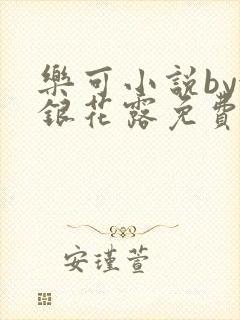 樂可小說by
銀花露免費
安瑾萱